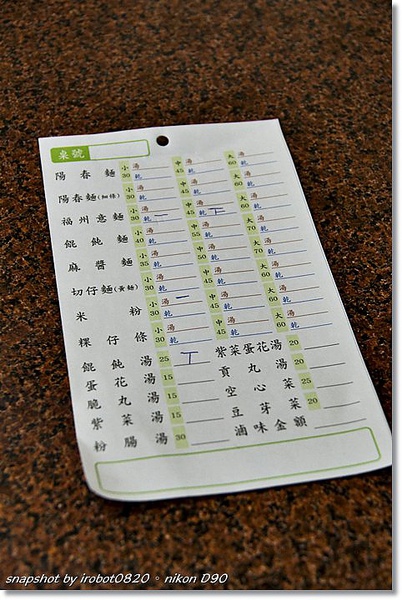 桌號
陽春麵 小30 湯 乾 中45 湯 乾 大60 湯 乾
陽春麵(細條) 小30 湯 乾 中45 湯 乾 大60 湯 乾
福州意麵 小30 湯 乾 一 中45 湯 乾 丅 大60 湯 乾
餛飩麵 小40 湯 乾 中55 湯 乾 大70 湯 乾
麻醬麵 小35 湯 乾 中50 湯 乾 大70 湯 乾
切仔麵(黃麵) 小30 湯 乾 中45 湯 乾 大60 湯 乾
米粉 小30 湯 一 乾 中45 湯 乾 大60 湯 乾
粿仔條 小30 湯 乾 中45 湯 乾 大60 湯 乾
餛飩湯 25 丅 紫菜蛋花湯 20
蛋花湯 15 貢丸湯 20
脆丸湯 15 空心菜 25
紫菜湯 15 豆芽菜 20
粉腸湯 30 滷味金額
snapshot by irobot0820。nikon D90